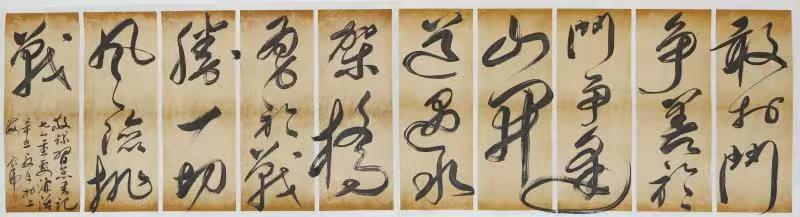 敢於鬥
争善於
鬥争逢
山開
道遇水
架橋
勇於戰
勝一切
風險挑
戰
敬録習總書記
七一重要講話
辛丑